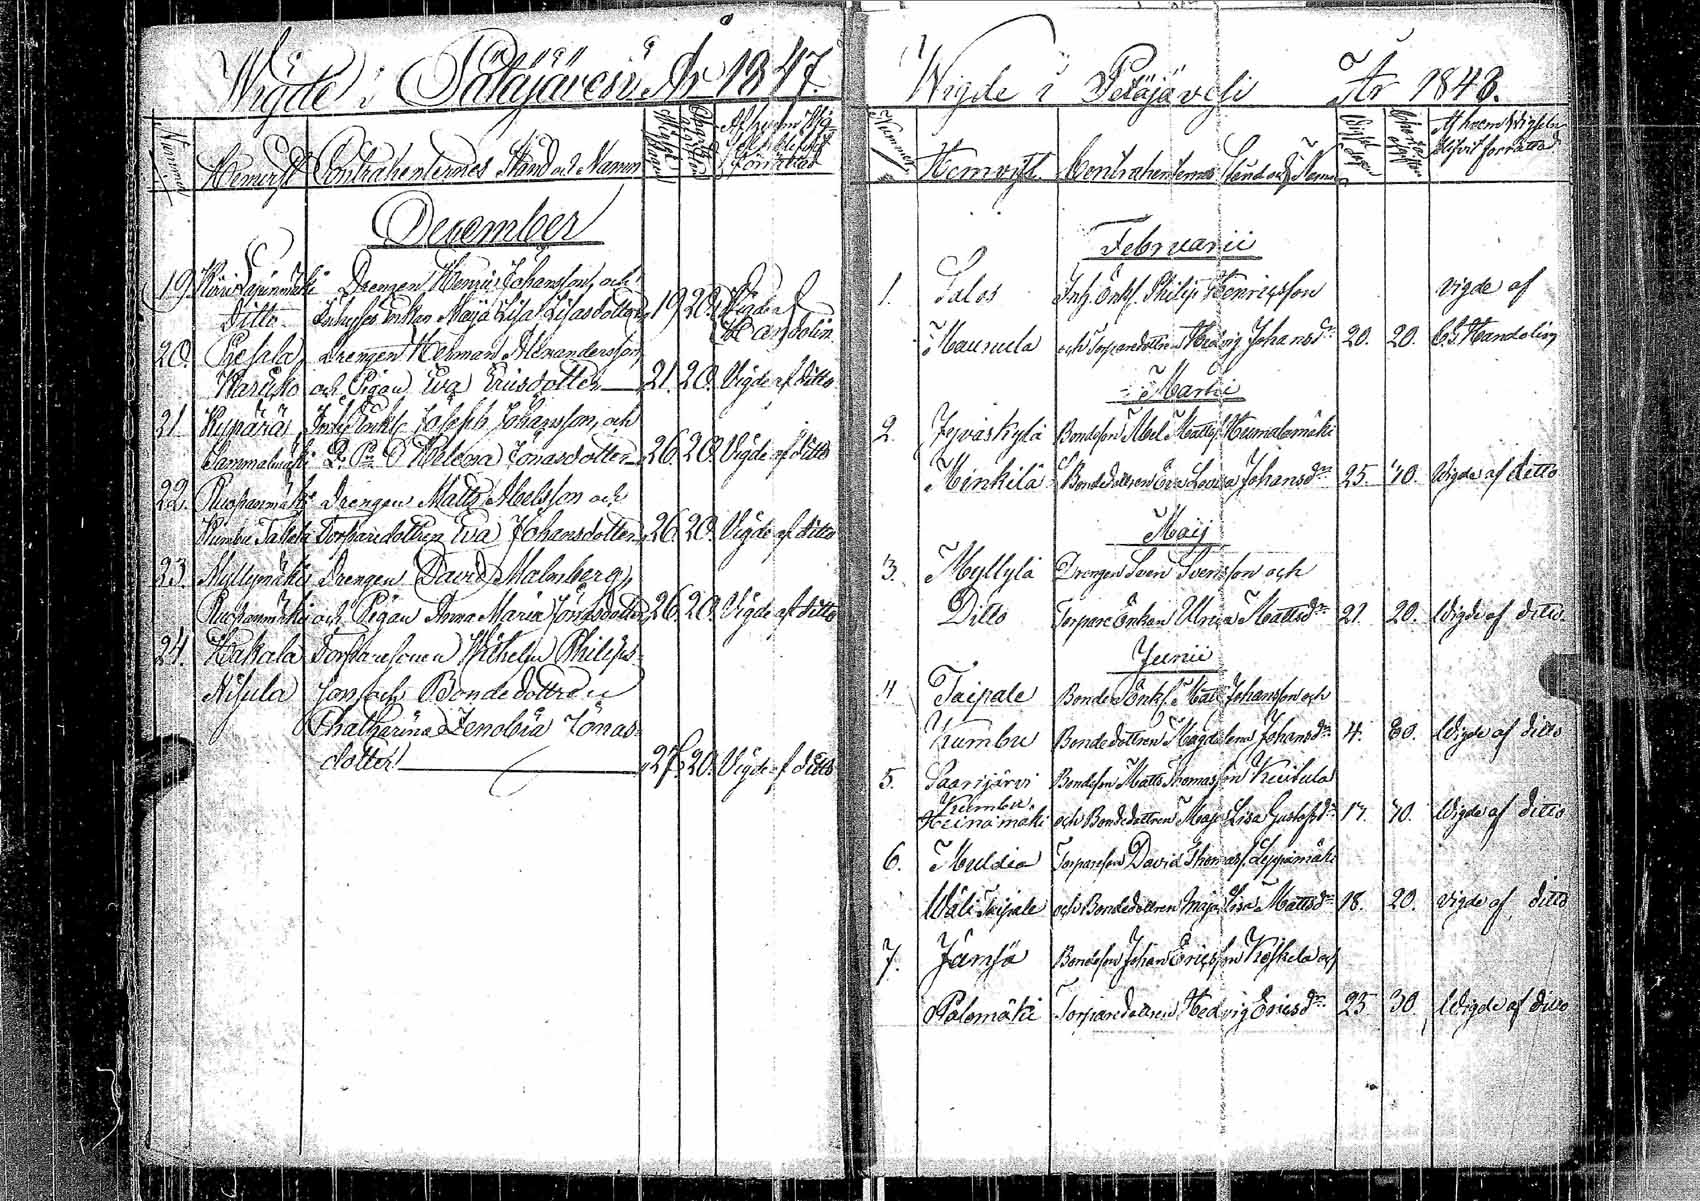 Wigde i Pätäjävesi År 1847.
Nummer
Hemvist
Contrahenternes Stånd och Namn
December
19. Kärki Lapinmäki Drengen Henric Johansson, och
Ditto Enkan Maja Lisa Lisasdotter 19 20. Vigde af Handolin
20. Prefala Drengen Herman Alexandersson
Karikko och Pigan Eva Ericsdotter 21. 20. Vigde af ditto
21 Kypärä Inh. Enkl. Joseph Johansson, och
Sammalmäki Helena Jonasdotter 26. 20. Vigde af ditto
22. Ruohanmäki Drengen Matts Abelsson och
Kumbu Taleta Torparedottren Eva Johansdotter 26. 20. Vigde af ditto
23. Myllymäki Drengen David Malmberg
Ruohanmäki och Pigan Anna Maria Jonasdotter 26. 20. Vigde af ditto
24. Hakala Torparesonen Wilhelm Philips-
Nisula son och Bondedottren
Chatharina Zenobia Jonas-
dotter 27. 20. Vigde af ditto
Wigde i Petäjävesi År 1848.
Nummer
Hemvist. Contrahenternes Stånd och Namn
Af hvem Vigseln blifvit förrättad
Februarii
1. Salos Inh. Enkl. Philip Henricsson vigde af
Mauruela och Torparedottren Hedvig Johansdr 20. 20. C.G. Handolin
Martii
2. Jyväskylä Bondeson Abel Mattss. Humalamäki
Minkilä Bondedottren Eva Lovisa Johansdr 25. 70. Vigde af ditto
Maij
3. Myllylä Drengen Sven Svensson och
Ditto Torpare Enkan Ulrica Mattsdr 21. 20. Vigde af ditto.
Junii
4. Taipale Bonden Enkl. Matts Johansson och
Kumbu Bondedottren Magdalena Johansdr 4. 80. Vigde af ditto
5. Saarijärvi Bondeson Matts Thomasson Kuitula
Kumbu
Heinamäki och Bondedottren Maja Lisa Gustafsdr 17. 70. Vigde af ditto
6. Muldia Torpareson David Thomass. Leppämäki
Wäli Taipale och Bondedottren Maja Lisa Mattsdr 18. 20. vigde af ditto
7. Jämsä Bondeson Johan Ericsson Koskela och
Palomäki Torparedottren Hedvig Ericsdr 23 30. Vigde af ditto